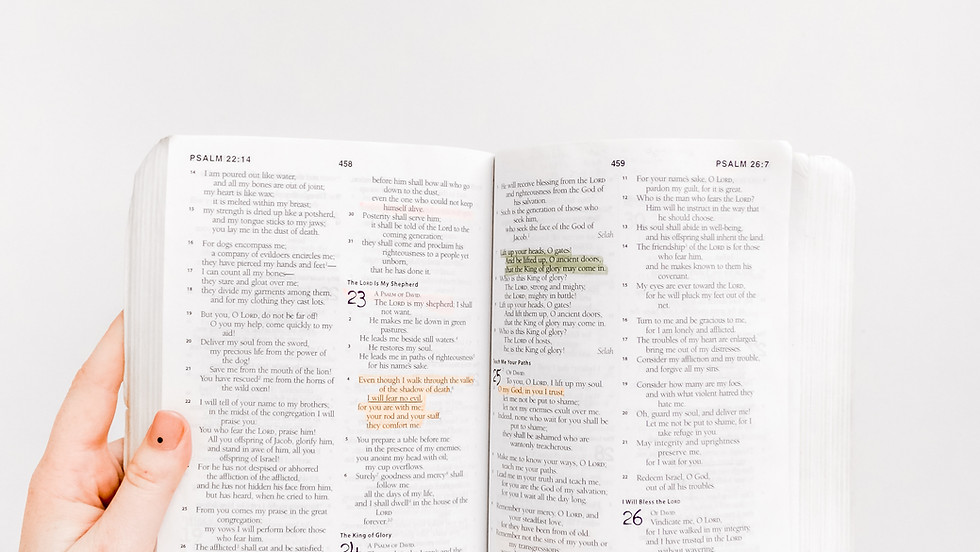 PSALM 22:14
458
14 I am poured out like water,
and all my bones are out of joint;
my heart is like wax;
it is melted within my breast;
15 my strength is dried up like a potsherd,
and my tongue sticks to my jaws;
you lay me in the dust of death.
16 For dogs encompass me;
a company of evildoers encircles me;
they have pierced my hands and feet—
17 I can count all my bones—
they stare and gloat over me;
18 they divide my garments among them,
and for my clothing they cast lots.
19 But you, O LORD, do not be far off!
O you my help, come quickly to my
aid!
20 Deliver my soul from the sword,
my precious life from the power of
the dog!
21 Save me from the mouth of the lion!
You have rescued me from the horns of
the wild oxen!
22 I will tell of your name to my brothers;
in the midst of the congregation I will
praise you:
You who fear the LORD, praise him!
All you offspring of Jacob, glorify him,
and stand in awe of him, all you
offspring of Israel!
For he has not despised or abhorred
the affliction of the afflicted,
and he has not hidden his face from him,
but has heard, when he cried to him.
25 From you comes my praise in the great
congregation;
my vows I will perform before those
who fear him.
26 The afflicted shall eat and be satisfied;
before him shall bow all who go
down to the dust,
even the one who could not keep
himself alive.
30 Posterity shall serve him;
it shall be told of the Lord to the
coming generation;
31 they shall come and proclaim his
righteousness to a people yet
unborn,
that he has done it.
The LORD Is My Shepherd
23 A PSALM OF DAVID.
The LORD is my shepherd; I shall
not want.
2 He makes me lie down in green
pastures.
He leads me beside still waters.
3 He restores my soul.
He leads me in paths of righteousness
for his name's sake.
4 Even though I walk through the valley
of the shadow of death,
I will fear no evil,
for you are with me;
your rod and your staff,
they comfort me.
5 You prepare a table before me
in the presence of my enemies;
you anoint my head with oil;
my cup overflows.
6 Surely goodness and mercy shall
follow me
all the days of my life,
and I shall dwell in the house of the
LORD
forever.
The King of Glory
24 A PSALM OF DAVID.
459
PSALM 26:7
He will receive blessing from the LORD
and righteousness from the God of
his salvation.
Such is the generation of those who
seek him,
who seek the face of the God of
Jacob. Selah
Lift up your heads, O gates!
And be lifted up, O ancient doors,
that the King of glory may come in.
Who is this King of glory?
The LORD, strong and mighty,
the LORD, mighty in battle!
Lift up your heads, O gates!
And lift them up, O ancient doors,
that the King of glory may come in.
Who is this King of glory?
The LORD of hosts,
he is the King of glory! Selah
Teach Me Your Paths
25 OF DAVID.
To you, O LORD, I lift up my soul.
O my God, in you I trust;
let me not be put to shame;
let not my enemies exult over me.
Indeed, none who wait for you shall be
put to shame;
they shall be ashamed who are
wantonly treacherous.
Make me to know your ways, O LORD;
teach me your paths.
Lead me in your truth and teach me,
for you are the God of my salvation;
for you I wait all the day long.
Remember your mercy, O LORD, and
your steadfast love,
for they have been from of old.
Remember not the sins of my youth or
my transgressions;
11 For your name's sake, O LORD,
pardon my guilt, for it is great.
12 Who is the man who fears the LORD?
Him will he instruct in the way that
he should choose.
13 His soul shall abide in well-being,
and his offspring shall inherit the land.
14 The friendship of the LORD is for those
who fear him,
and he makes known to them his
covenant.
15 My eyes are ever toward the LORD,
for he will pluck my feet out of the
net.
16 Turn to me and be gracious to me,
for I am lonely and afflicted.
17 The troubles of my heart are enlarged;
bring me out of my distresses.
18 Consider my affliction and my trouble,
and forgive all my sins.
19 Consider how many are my foes,
and with what violent hatred they
hate me.
20 Oh, guard my soul, and deliver me!
Let me not be put to shame, for I
take refuge in you.
21 May integrity and uprightness
preserve me,
for I wait for you.
22 Redeem Israel, O God,
out of all his troubles.
I Will Bless the LORD
26 OF DAVID.
Vindicate me, O LORD,
for I have walked in my integrity,
and I have trusted in the LORD
without wavering.